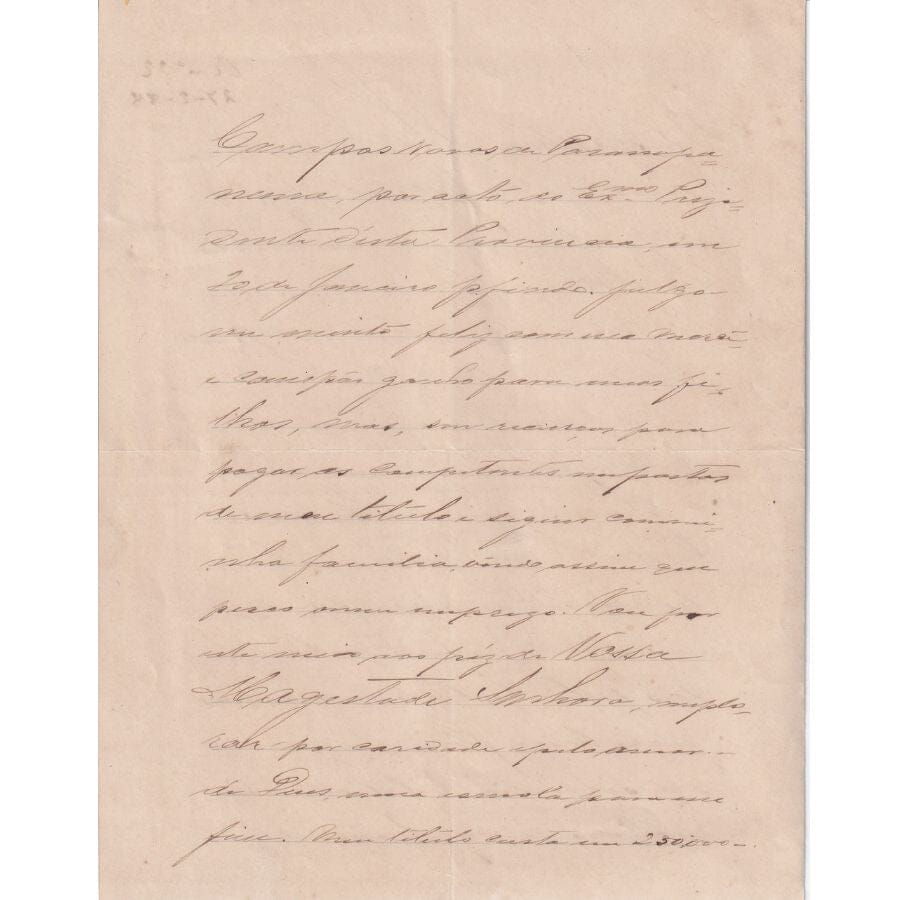 Campos Novos de Paranapa=
nema, por acto do Exmo Prezi=
dente d'esta Provincia, em
20 de Janeiro pfindo. Julgo
me muito feliz com essa mercê
e com pão ganho para meus fi=
lhos, mas, sem recursos para
pagar os competentes impostos
de meu titulo e seguir com mi=
nha familia, vendo assim que
perco meu emprego. Vou por
este meio aos péz de Vossa
Magestade Senhora, implo=
rar por caridade e pelo amor
de Deus, uma esmola para esse
fim. Meu titulo custa-me 250,000